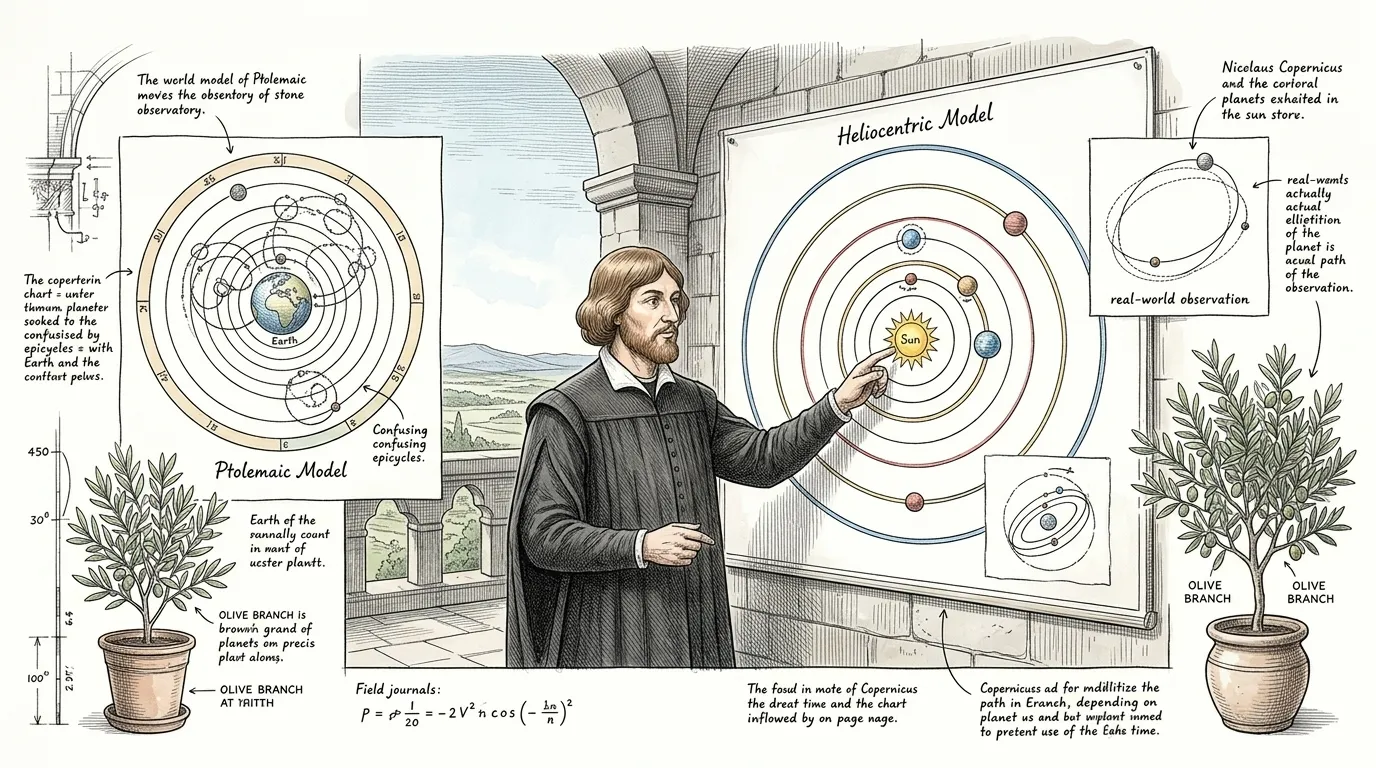 The world model of Ptolemaic
moves the obsentory of stone
observatory.
The coperterin
chart = unter
thmum planeter
sooked to the
confusised by
epicycles = with
Earth and the
conftart pelws.
Earth
Confusing
confusing
epicycles.
Ptolemaic Model
450
30°
100°
Earth of the
sannally count
in want of
ucster plantt.
OLIVE BRANCH is
grand of
planets om precis
plant aloms.
OLIVE BRANCH
AT
Heliocentric Model
Sun
Nicolaus Copernicus
and the corioral
planets exhaited in
the sun store.
real-wemls
actually
actual
ellietition
of the
planet is
acual path
of the
observation.
real-world observation
OLIVE
BRANCH
OLIVE
BRANCH
Field journals:
The fosud in mote of Copernicus
the dreat time and the chart
inflowed by on page nage.
Copernicuss ad for mdilitize the
path in Eranch, depending on
planet us and but immed
to pretent use of the Eahs time.